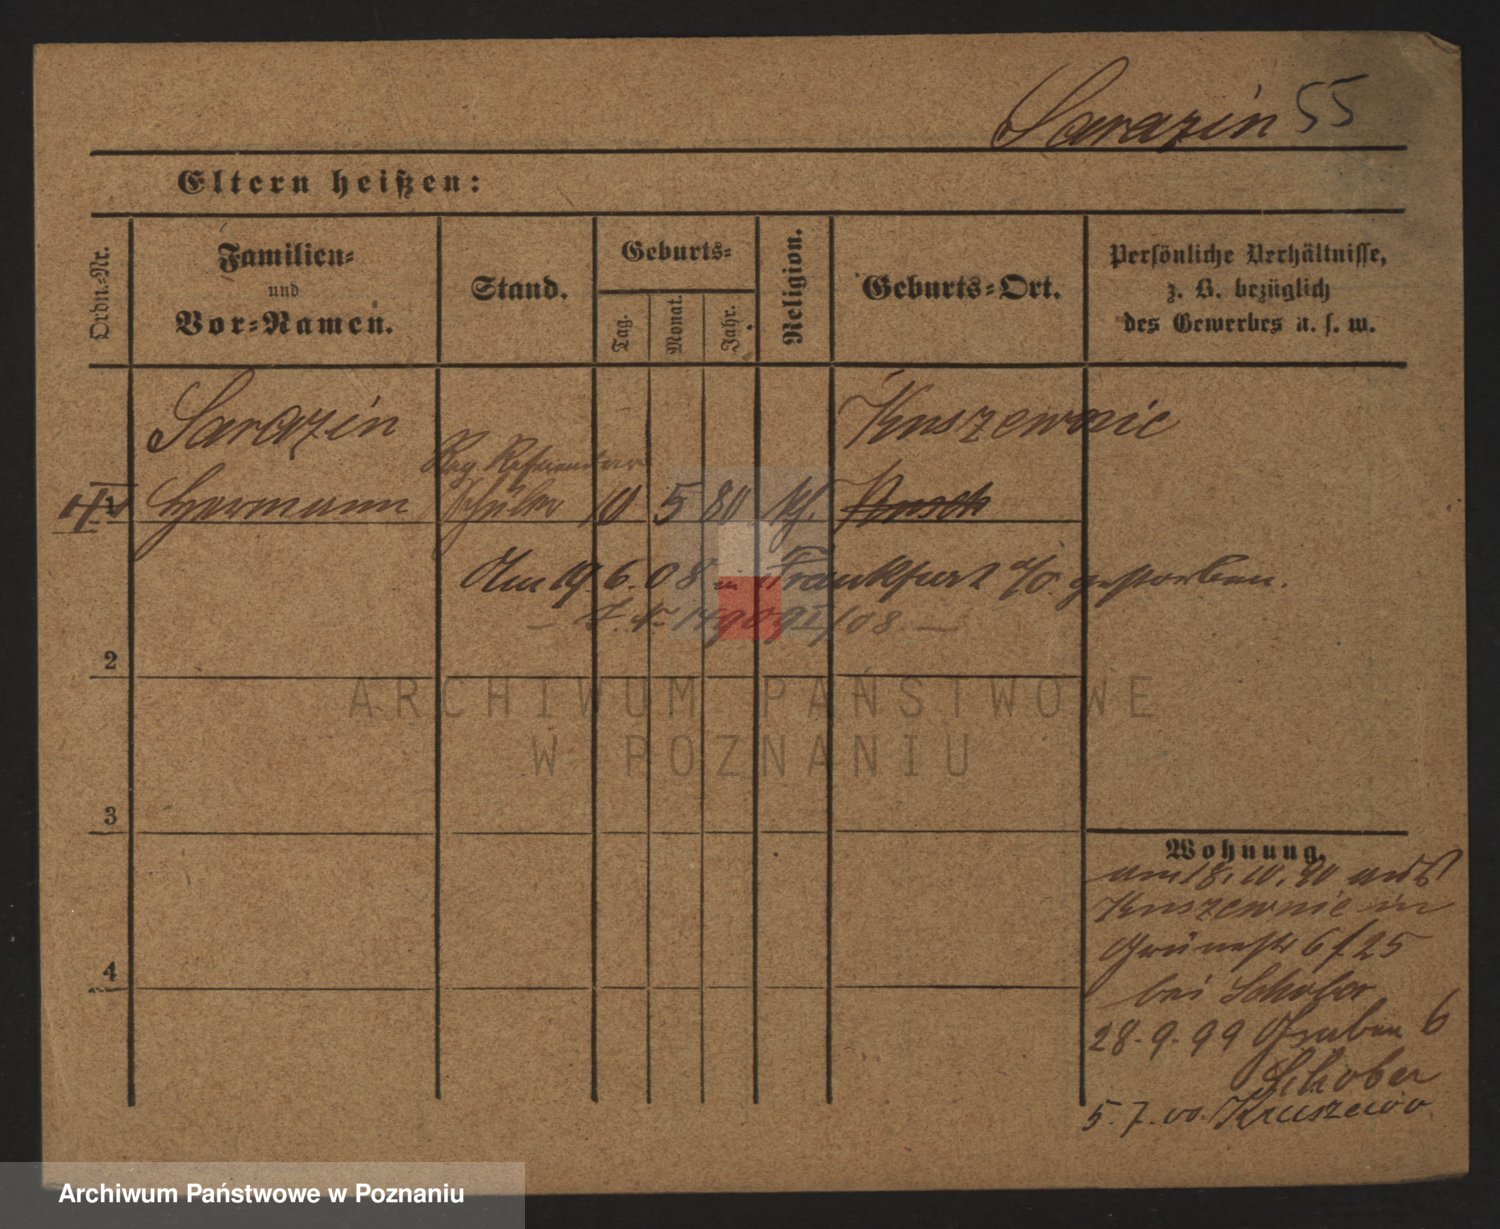 Sarazin 55
Eltern heißen:
Ordn.-Nr.
Familien-
und
Vor-Namen.
Stand.
Geburts-
Tag.
Monat.
Jahr.
Religion.
Geburts-Ort.
Persönliche Verhältnisse,
z. B. bezüglich
des Gewerbes u. s. w.
Sarazin
Kuszewnie
Reg. Referendar
Hermann Schüler 10 5 80
Am 19 6. 08 in Frankfurt a/O. gestorben.
2
ARCHIWUM PAŃSTWOWE
W POZNANIU
3
Wohnung.
am 18. 10. 90 aus
Kuszewnie in
6 f. 25
4
bei Schober
28. 9. 99 Graben 6
Schober
5. 7. 00. Kruszewo
Archiwum Państwowe w Poznaniu